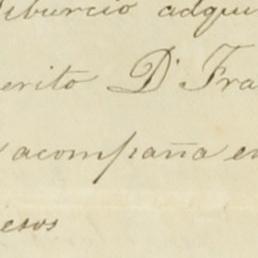 tiburcio adqui
erito Dn Fra
acompaña en
esos